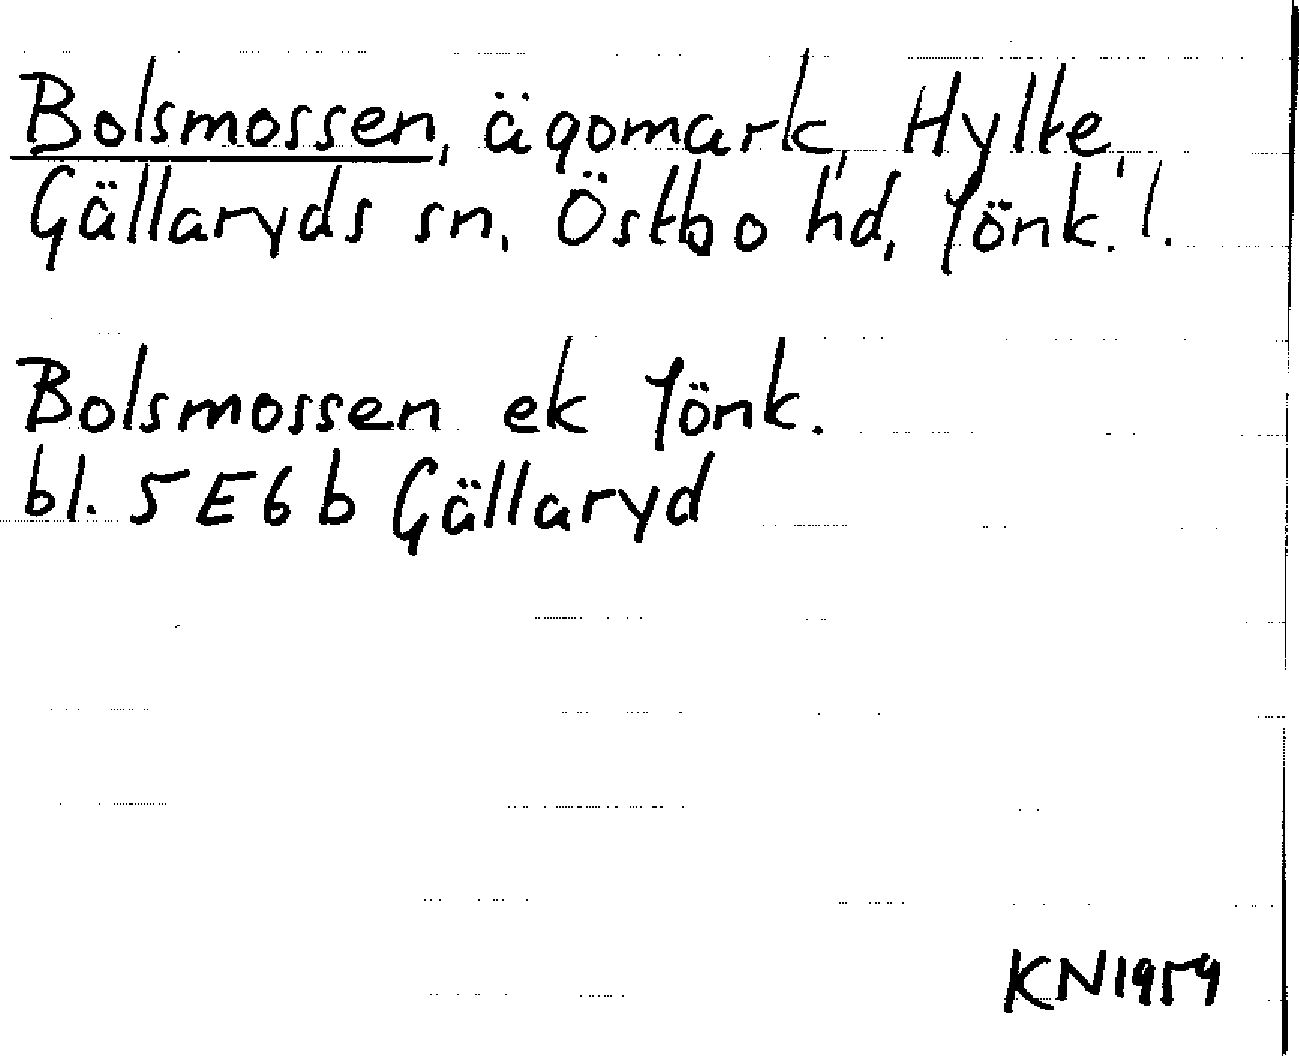 Bolsmossen, ägomark, Hylte,
Gällaryds sn, Östbo hd, Jönk. l.
Bolsmossen ek Jönk.
bl. 5E6b Gällaryd
KN1959